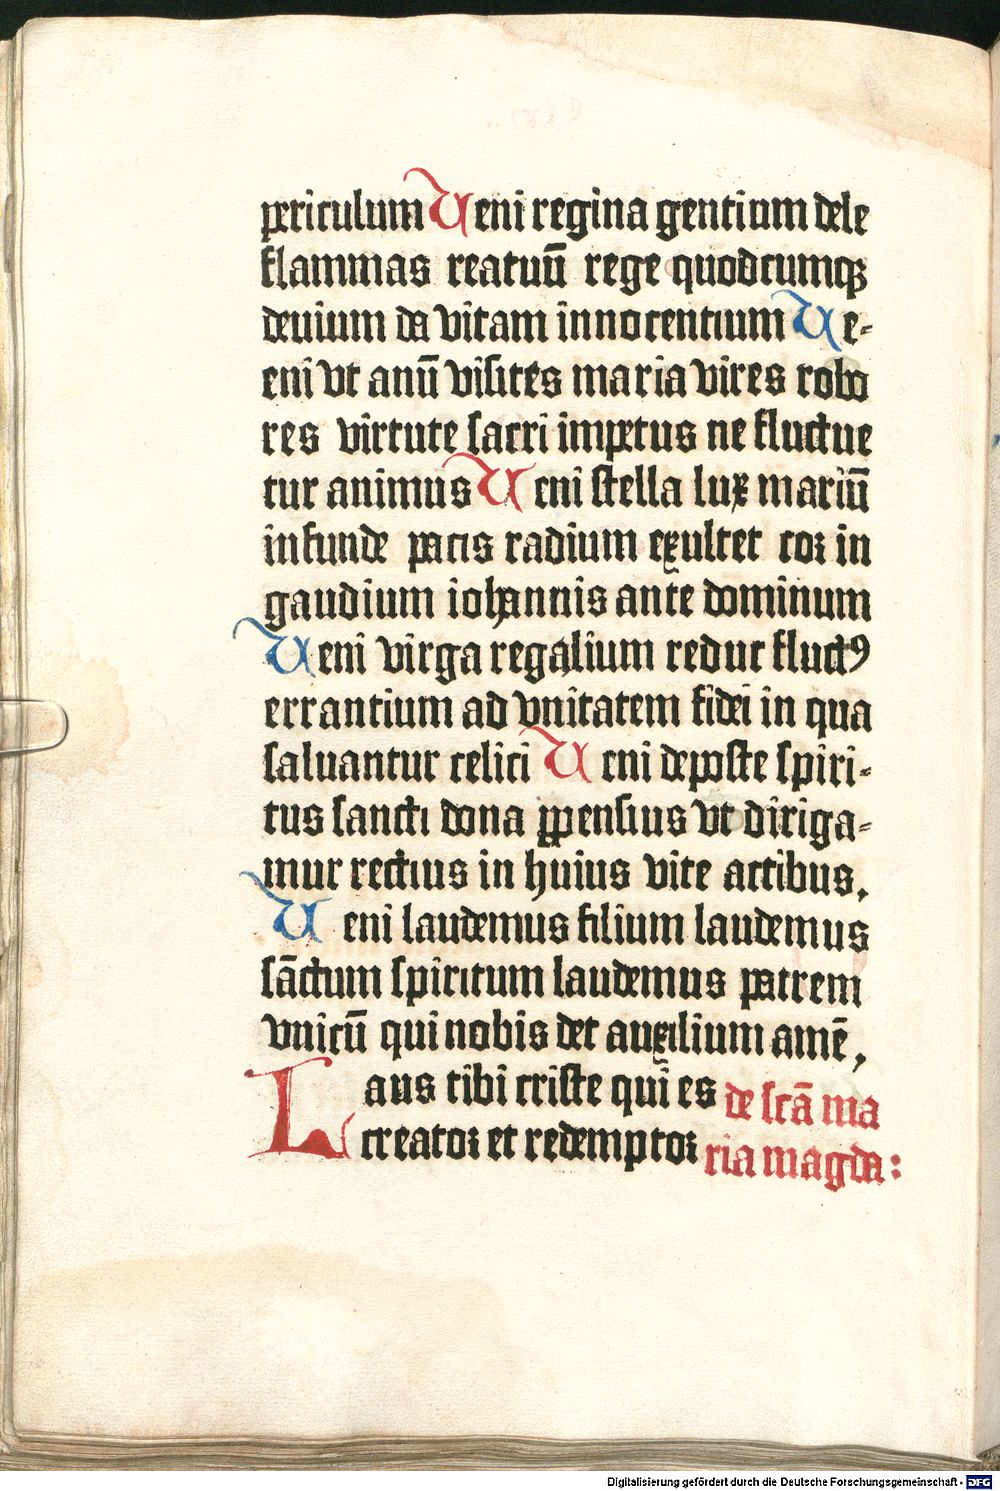 periculum Ueni regina gentium dele
flammas reatuū rege quodcumqꝫ
deuium da vitam innocentium Ue-
eni vt anū visites maria vires robo
res virtute sacri impetus ne fluctue
tur animus Ueni stella lux mariū
infunde pacis radium exultet coꝛ in
gaudium iohannis ante dominum
Ueni virga regalium reduc fluctꝰ
errantium ad vnitatem fidei in qua
saluantur celici Ueni deposte spiri-
tus sancti dona ꝓpensius vt diriga-
mur rectius in huius vite actibus.
Ueni laudemus filium laudemus
sāctum spiritum laudemus patrem
vnicū qui nobis det auxilium amē,
Laus tibi criste qui es de scā ma
creatoꝛ et redemptoꝛ ria magda:
Digitalisierung gefördert durch die Deutsche Forschungsgemeinschaft - DFG